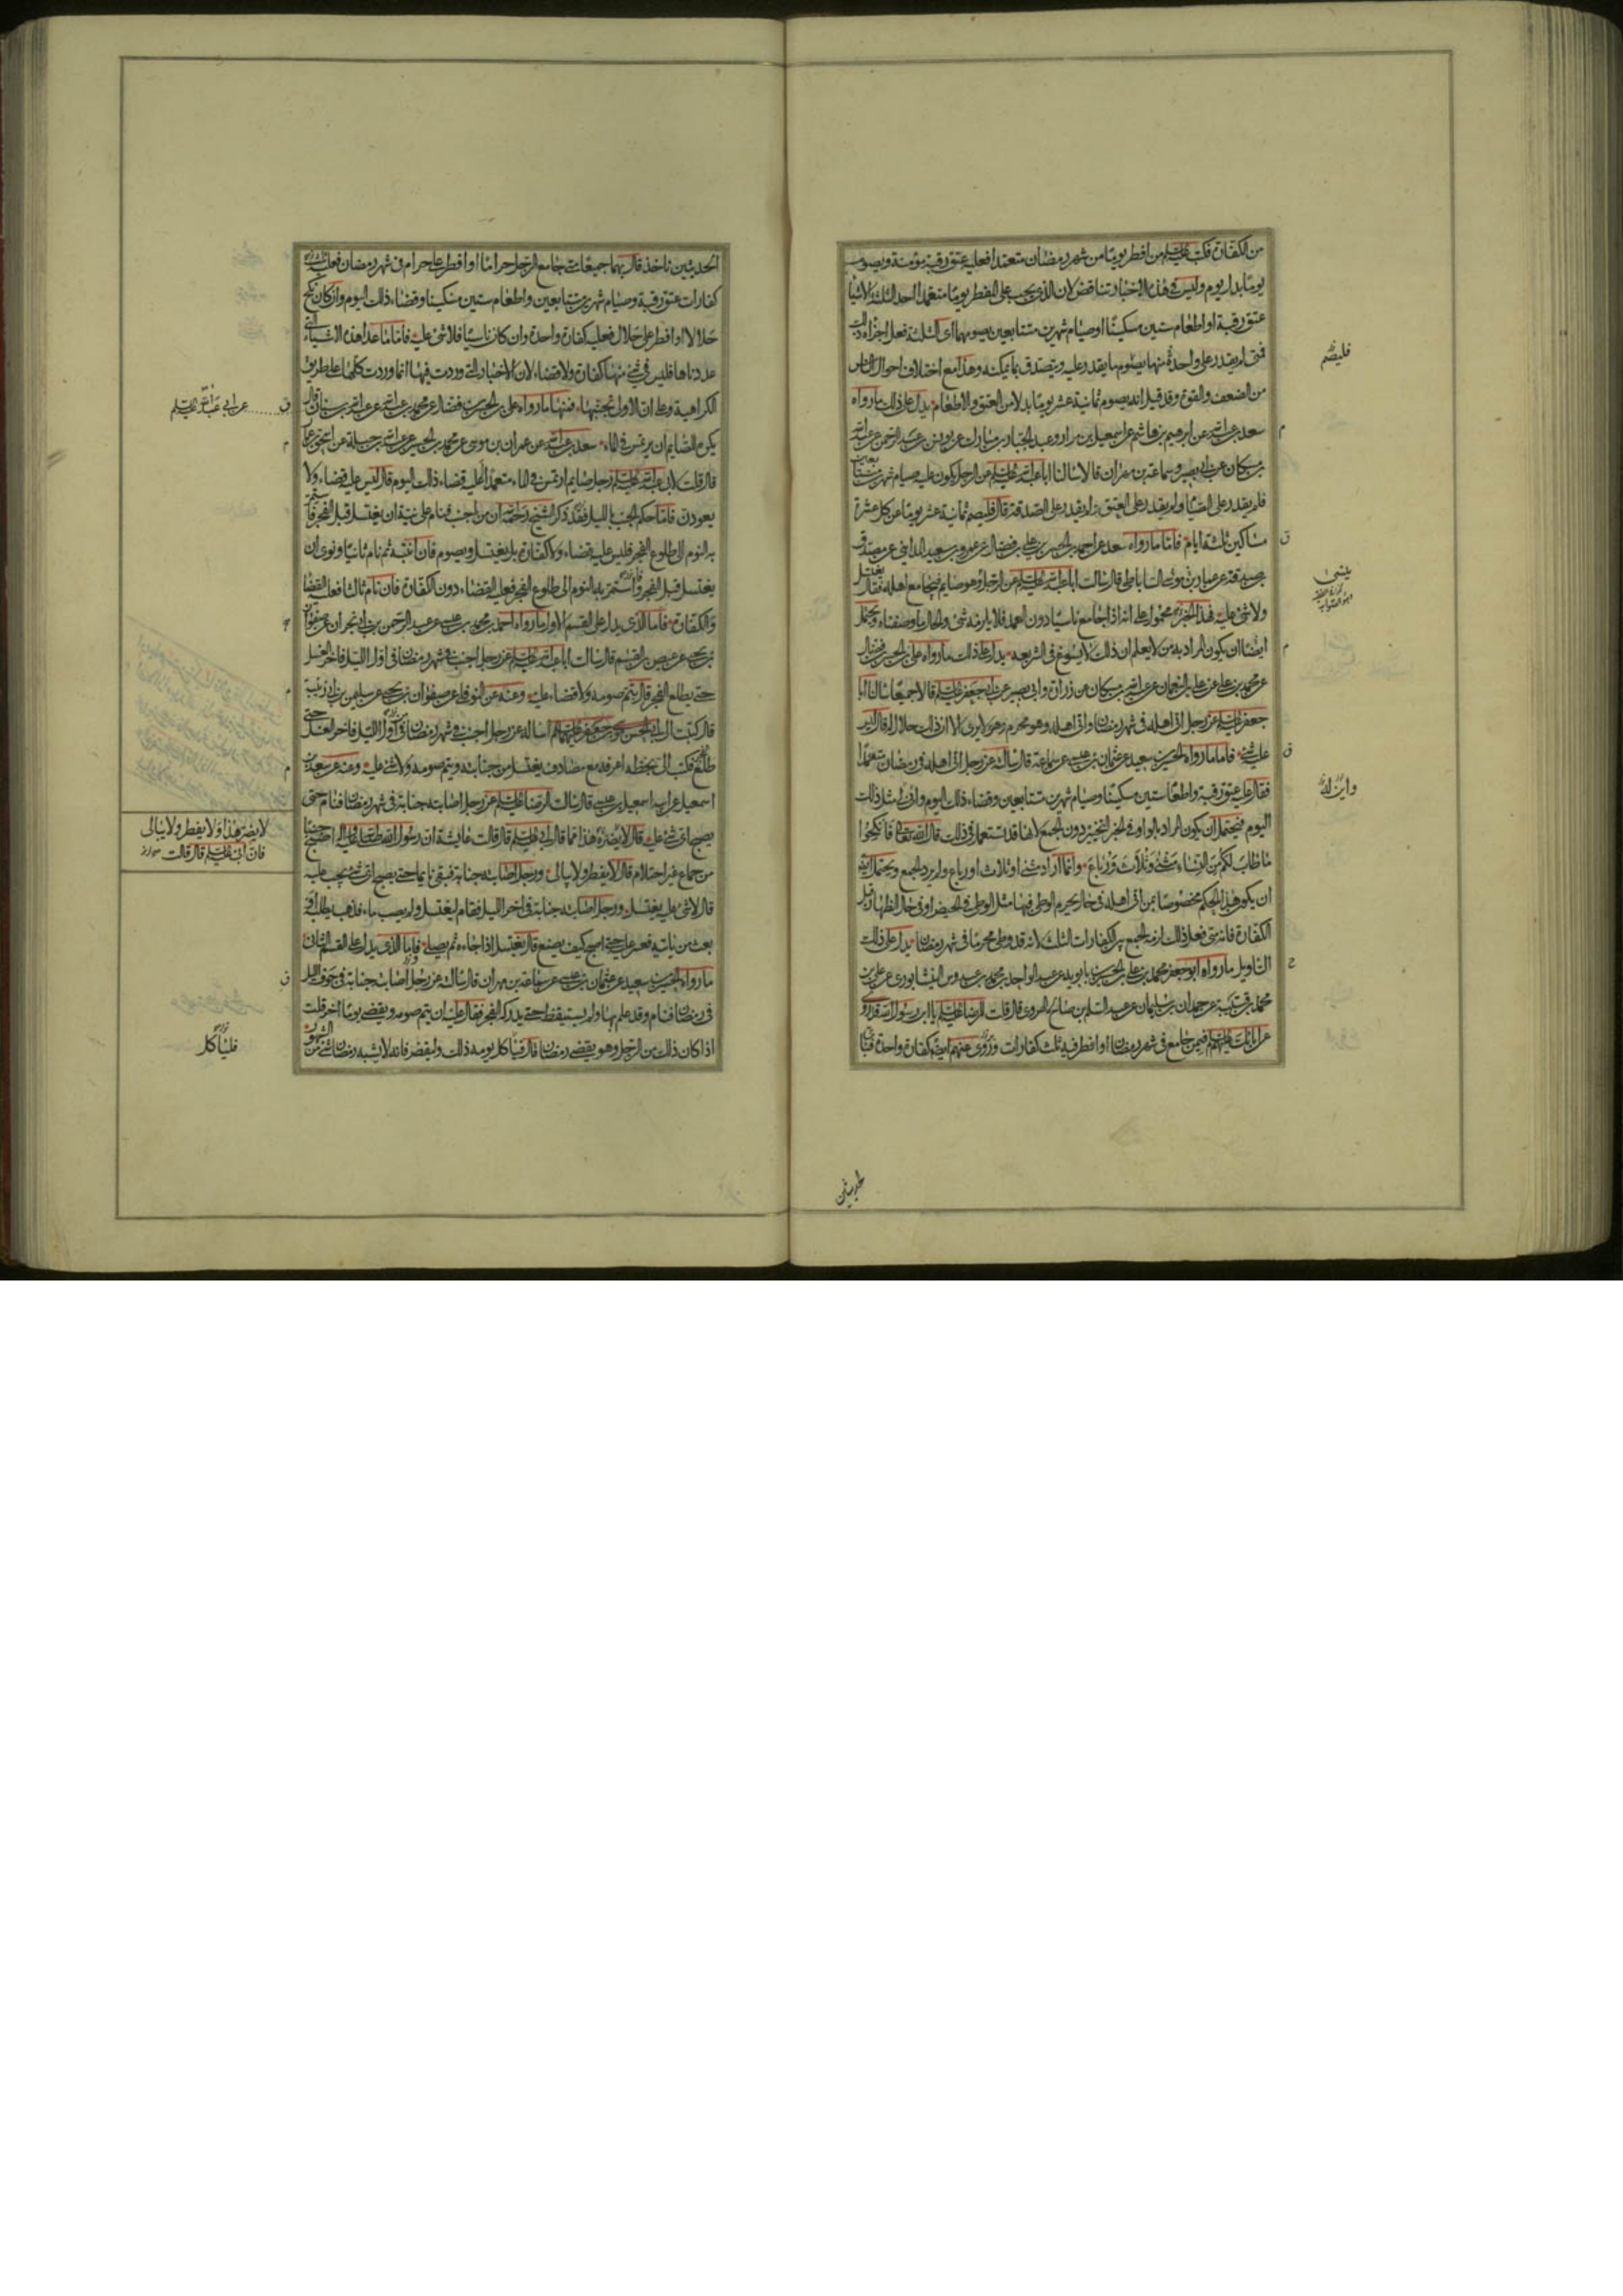 من الكفارة فكتب عليه السلم من افطر يوما من شهر رمضان متعمدا فعليه عتق رقبة مؤمنة ويصوم
يوما بدل يوم وليس في هذه الاخبار تناقض لان الذي يجب على المفطر يوما متعمدا احد الثلثة الاشياء
عتق رقبة او اطعام ستين مسكينا او صيام شهرين متتابعين يصومهما اى الثلثة فعل اجزأه ذلك
فمتى لم يقدر على واحدة منها يصوم ما يقدر عليه ويتصدق بما يمكنه وهذا مع اختلاف احوال الناس
من الضعف والقوة وقد قيل انه يصوم ثمانية عشر يوما بدلا من العتق والاطعام يدل على ذلك ما رواه
سعد بن عبد الله عن ابرهيم بن هاشم عن اسمعيل بن مرار وعبد الجبار بن مبارك عن يونس بن عبد الرحمن عن عبد الله
بن مسكان عن ابى بصير وسماعة بن مهران قالا سالنا ابا عبد الله عليه السلم عن الرجل يكون عليه صيام شهرين متتابعين
فلم يقدر على الصيام ولم يقدر على العتق ولم يقدر على الصدقة قال فليصم ثمانية عشر يوما عن كل عشرة
مساكين ثلثة ايام فاما ما رواه سعد عن احمد بن الحسن بن على بن فضال عن عمرو بن سعيد المدايني عن مصدق
بن صدقة عن عمار بن موسى الساباطى قال سالت ابا عبد الله عليه السلم عن الرجل وهو صايم فيجامع اهله فقال يغتسل
ولا شئ عليه فهذا الخبر محمول على انه اذا جامع ناسيا دون العمد فلا يلزمه شئ والحال ما وصفناه ويحتمل
ايضا ان يكون المراد به من لا يعلم ان ذلك لا يسوغ في الشريعة يدل على ذلك ما رواه على بن الحسن بن فضال
عن محمد بن على عن على بن النعمان عن عبد الله بن مسكان عن زرارة وابى بصير عن ابى جعفر عليه السلم قالا جميعا سالنا ابا
جعفر عليه السلم عن رجل اتى اهله فى شهر رمضان واتى اهله وهو محرم وهو لا يرى الا ان ذلك حلال له قال ليس
عليه شئ فاما ما رواه الحسين بن سعيد عن عثمان بن عيسى عن سماعة قال سالته عن رجل اتى اهله في رمضان متعمدا
فقال عليه عتق رقبة واطعام ستين مسكينا وصيام شهرين متتابعين وقضاء ذلك اليوم واين له مثل ذلك
اليوم فيحتمل ان يكون المراد بالواو فى الخبر التخيير دون الجمع لانها قد تستعمل في ذلك قال الله تعالى فانكحوا
ما طاب لكم من النساء مثنى وثلاث ورباع وانما اراد مثنى او ثلاث او رباع ولم يرد الجمع ويحتمل ايضا
ان يكون هذا الحكم مخصوصا بمن اتى اهله فى حال يحرم الوطى فيها مثل الوطى فى الحيض او فى حال الظهار قبل
الكفارة فانه متى فعل ذلك لزمه الجمع بين الكفارات الثلث لانه قد وطى محرما في شهر رمضان يدل على ذلك
التاويل ما رواه ابو جعفر محمد بن على بن الحسين بن بابويه عن عبد الواحد بن محمد بن عبدوس النيشابورى عن على بن
محمد بن قتيبة عن حمدان بن سليمان عن عبد السلم بن صالح الهروى قال قلت للرضا عليه السلم يا ابن رسول الله قد روى
عن ابائك عليهم السلم فيمن جامع فى شهر رمضان او افطر فيه ثلث كفارات وروى عنهم ايضا كفارة واحدة فباى
فليصم
واين له
حديثين
الحديثين ناخذ قال بهما جميعا متى جامع الرجل حراما او افطر على حرام فى شهر رمضان فعليه ثلث
كفارات عتق رقبة وصيام شهرين متتابعين واطعام ستين مسكينا وقضاء ذلك اليوم وان كان نكح
حلالا او افطر على حلال فعليه كفارة واحدة وان كان ناسيا فلا شئ عليه فاما ما عدا هذه الاشياء التى
عددناها فليس فى شئ منها كفارة ولا قضاء لان الاخبار التى وردت فيها انما وردت كلها على طريق
الكراهية وعلى ان الاولى تجنبها فمنها ما رواه على بن الحسن بن فضال عن محمد بن عبد الله عن عبد الله بن سنان قال
يكره للصايم ان يرتمس فى الماء سعد بن عبد الله عن عمران بن موسى عن محمد بن الحسين عن عبد الله بن جبلة عن اسحق بن عمار
قال قلت لابى عبد الله عليه السلم رجل صايم ارتمس فى الماء متعمدا اعليه قضاء ذلك اليوم قال ليس عليه قضاء ولا
يعودن فاما حكم الجنب بالليل فقد ذكر الشيخ رحمه الله ان من اجنب فنام على نية ان يغتسل قبل الفجر فاستمر
به النوم الى طلوع الفجر فليس عليه قضاء ولا كفارة بل يغتسل ويصوم فان انتبه ثم نام ثانيا ونوى ان
يغتسل قبل الفجر واستمر به النوم الى طلوع الفجر فعليه القضاء دون الكفارة فان نام ثالثا فعليه القضا
والكفارة فاما الذى يدل على القسم الاول ما رواه احمد بن محمد بن عيسى عن عبد الرحمن بن ابى نجران عن صفوان
بن يحيى عن عيص بن القسم قال سالت ابا عبد الله عليه السلم عن رجل اجنب فى شهر رمضان فى اول الليل فاخر الغسل
حتى يطلع الفجر قال يتم صومه ولا قضاء عليه وعنه عن النوفلى عن صفوان بن يحيى عن سليمن بن ابى زينبة
قال كتبت الى ابى الحسن موسى بن جعفر عليهما السلم اساله عن رجل اجنب فى شهر رمضان من اول الليل فاخر الغسل حتى
طلع الفجر فكتب الى بخطه اعرفه مع مصادف يغتسل من جنابته ويتم صومه ولا شئ عليه وعنه عن سعد بن
اسمعيل عن ابيه اسمعيل بن عيسى قال سالت الرضا عليه السلم عن رجل اصابته جنابة فى شهر رمضان فنام حتى
يصبح اى شئ عليه قال لا يضره هذا فما قال ابى عليه السلم قال قالت عايشة ان رسول الله صلى الله عليه واله اصبح جنبا
من جماع غير احتلام قال لا يفطر ولا يبالى ورجل اصابته جنابة فبقى نايما حتى يصبح اى شئ يجب عليه
قال لا شئ عليه يغتسل ورجل اصابته جنابة فى اخر الليل فقام ليغتسل ولم يصب ماء فذهب يطلبه او
بعث من ياتيه فعسر عليه حتى اصبح كيف يصنع قال يغتسل اذا جاءه ثم يصلى فاما الذى يدل على القسم الثانى
ما رواه الحسين بن سعيد عن عثمان بن عيسى عن سماعة بن مهران قال سالته عن رجل اصابته جنابة فى جوف الليل
فى رمضان فنام وقد علم بها ولم يستيقظ حتى يدركه الفجر فقال عليه ان يتم صومه ويقضى يوما اخر قلت
اذا كان ذلك من الرجل وهو يقضى رمضان قال فلياكل يومه ذلك وليقض فانه لا يشبه رمضان شئ من الشهور
عن ابى عبد الله عليه السلم
لا يضره هذا ولا يفطر ولا يبالى
فان ابى عليه السلم قال قالت
فلياكل